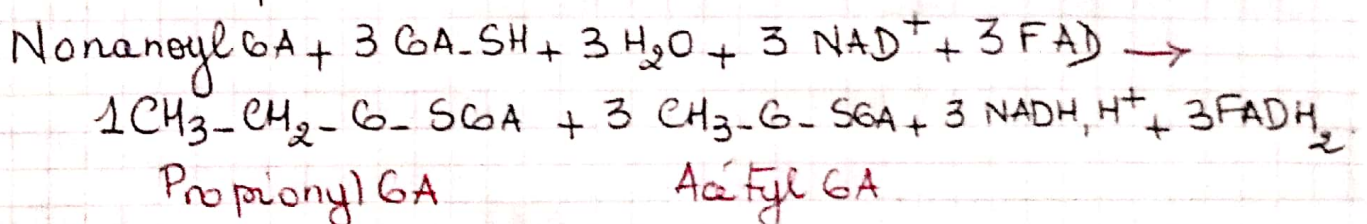 Nonanoyl CoA + 3 CoA-SH + 3 H₂O + 3 NAD⁺ + 3 FAD →
1CH₃-CH₂-CO-SCoA + 3 CH₃-CO-SCoA + 3 NADH, H⁺ + 3FADH₂
Propionyl CoA Acétyl CoA